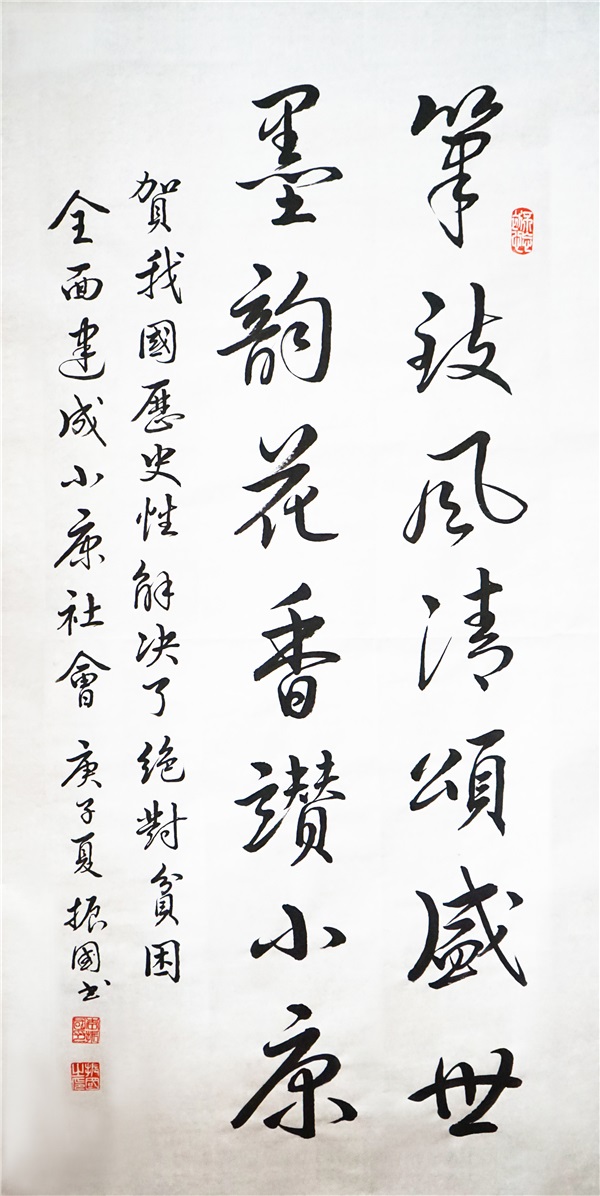 筆致风清頌盛世
墨韵花香讚小康
賀我國歷史性解决了绝對貧困
全面建成小康社會 庚子夏 振國书